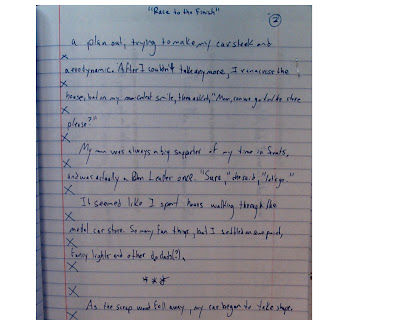 "Race to the Finish"
2
a plan out, trying to make my car sleek and
aerodynamic. After I couldn't take any more, I ran across the
house, put on my most smile, then asked, "Mom, can we go to the store
please?"
My mom was always a big supporter of my time in Scouts,
and was actually a Den Leader once. "Sure," she said, "let's go."
It seemed like I spent hours walking through the
model car store. So many fun things, but I settled on some paint,
fancy lights and other decals(?).
***
As the scrap wood fell away, my car began to take shape.